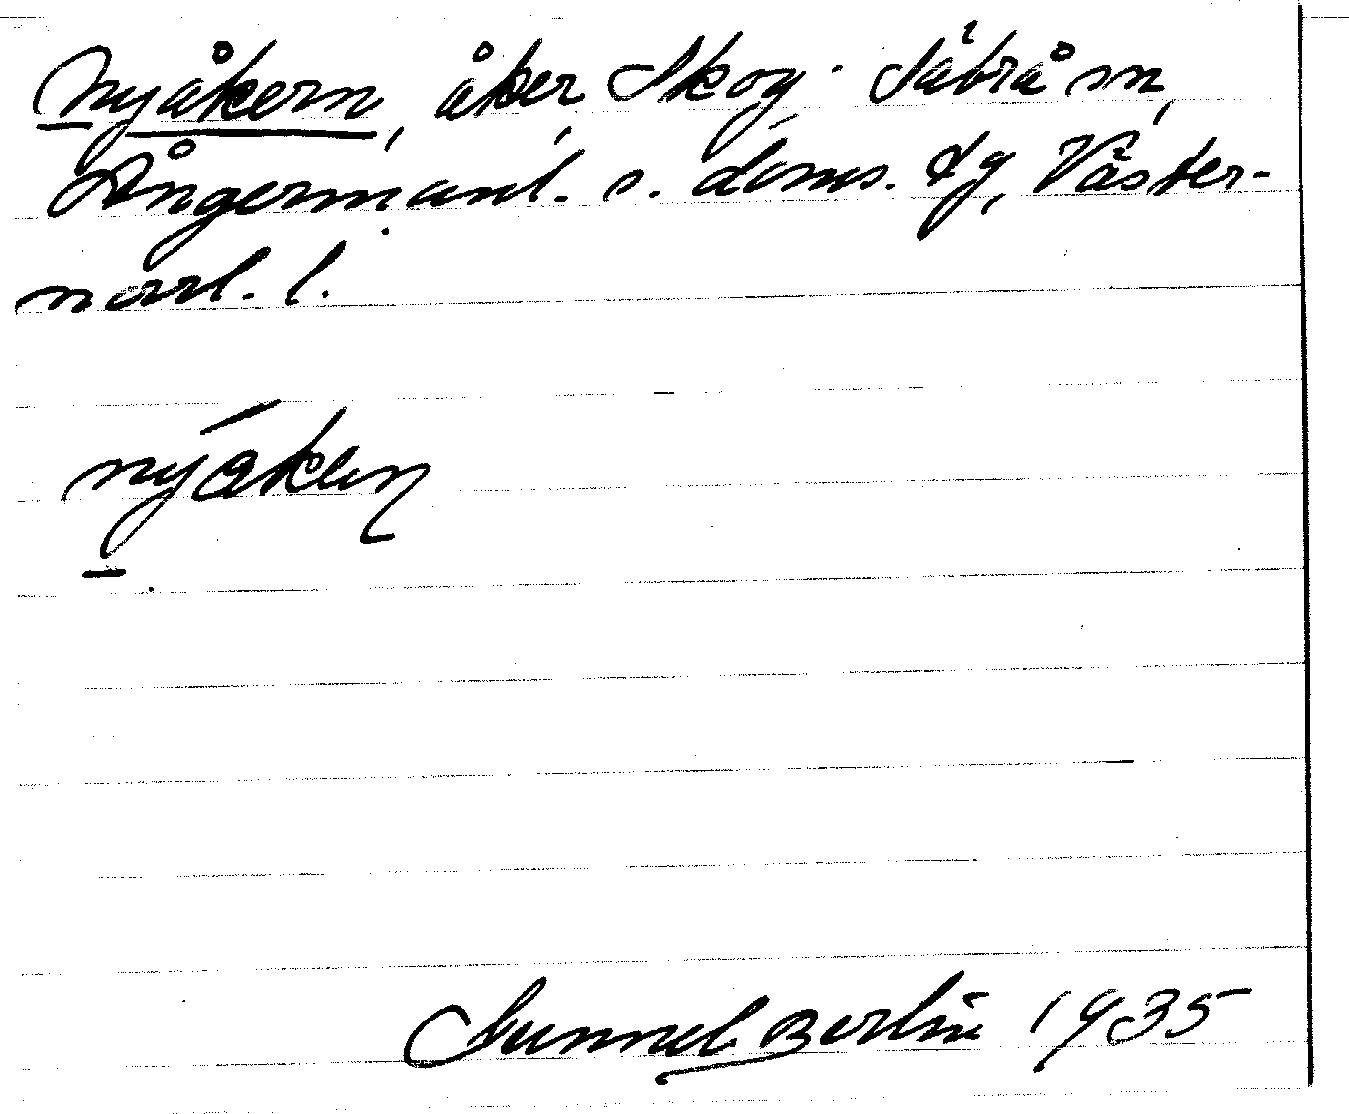 Nyåkern, åker, Skog. Säbrå sn,
Ångermanl. s. doms. tg, Väster-
norrl. l.
nyåken
Gunnel Berlin 1935